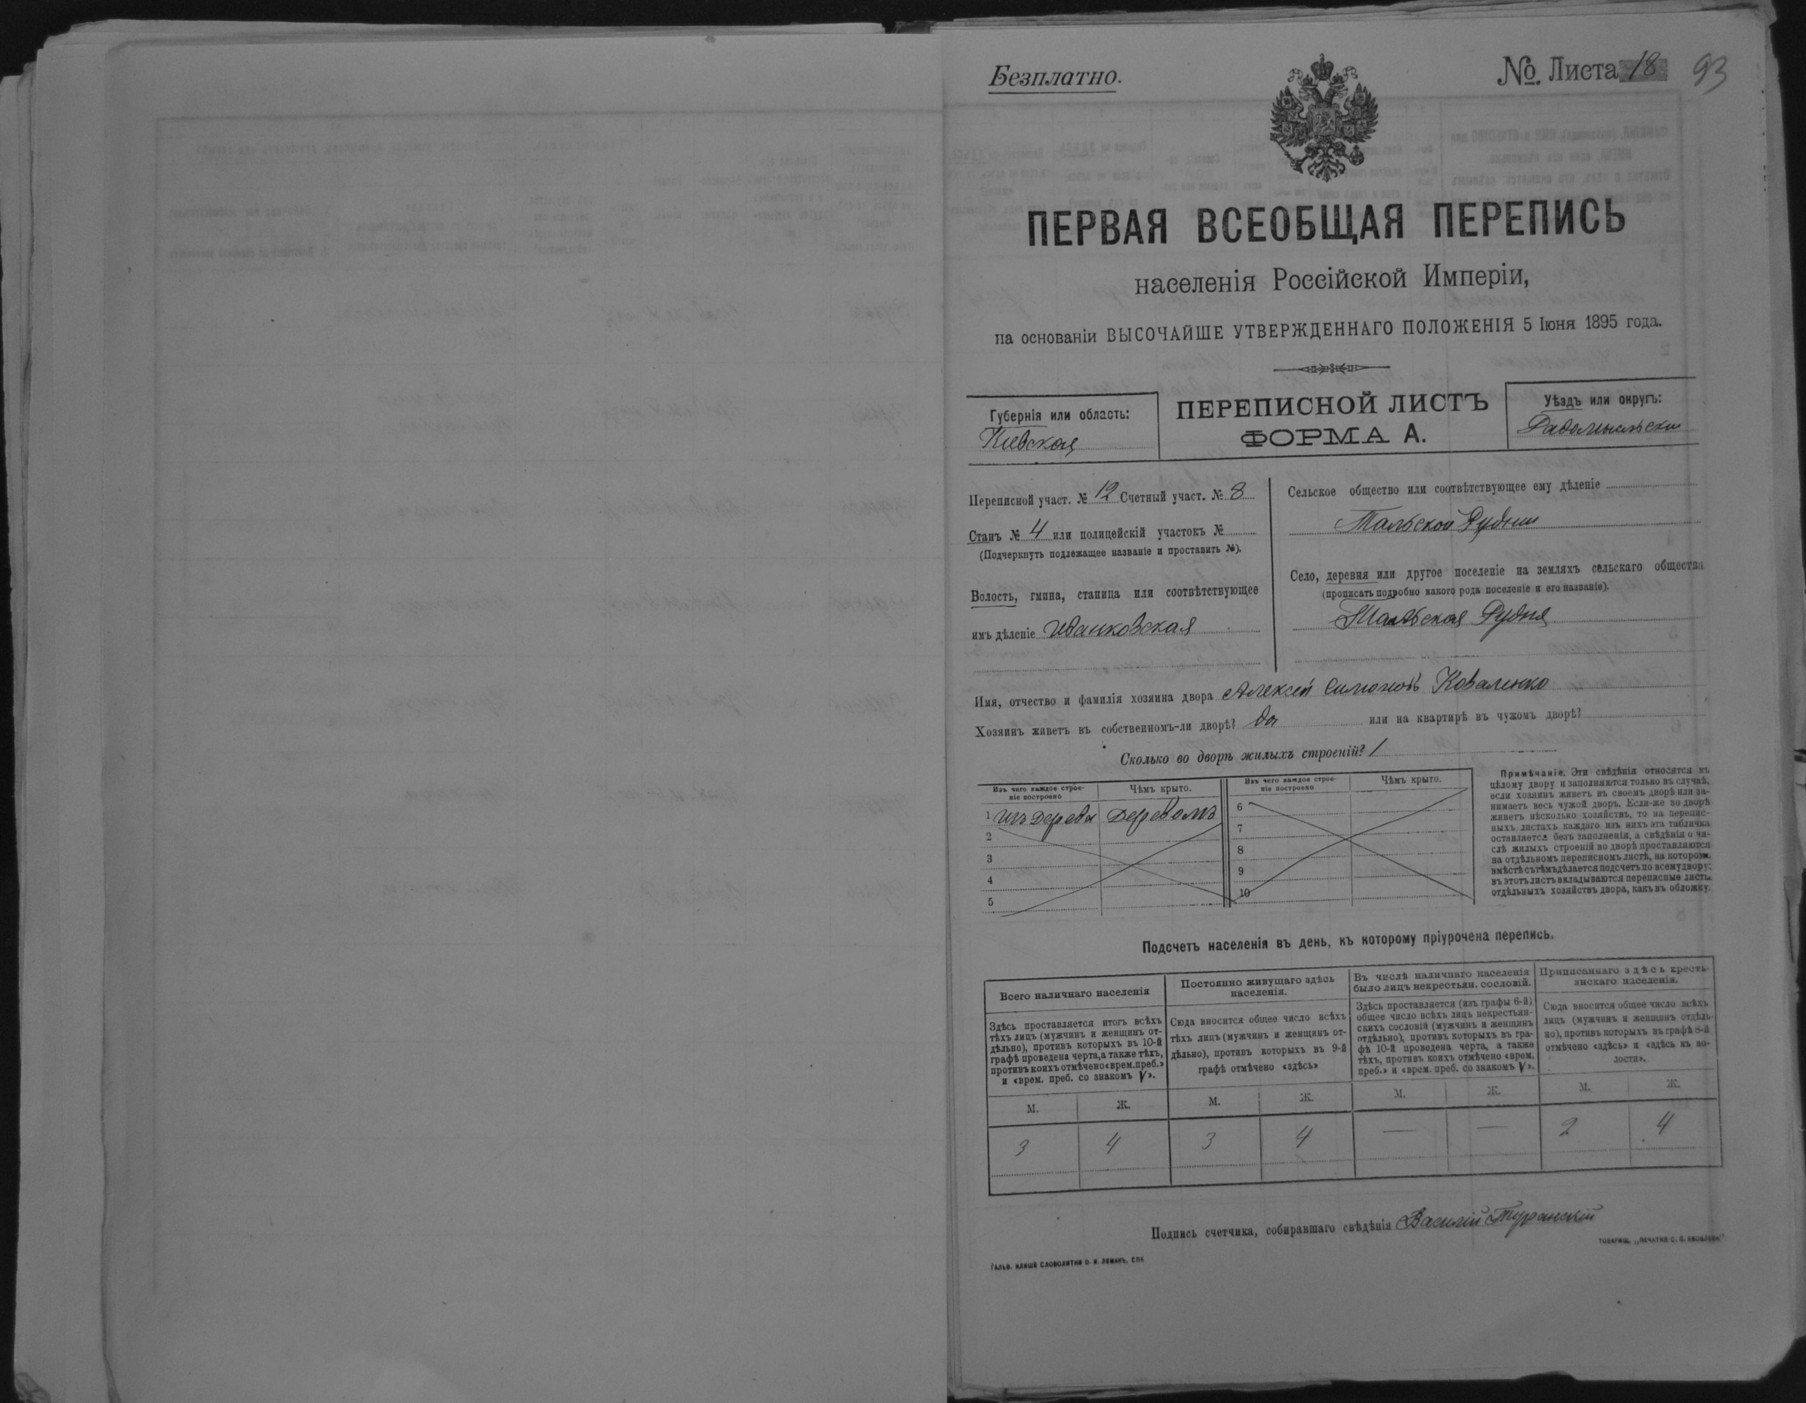 Безплатно.
№ Листа 18 93
ПЕРВАЯ ВСЕОБЩАЯ ПЕРЕПИСЬ
населенія Россійской Имперіи,
на основаніи ВЫСОЧАЙШЕ УТВЕРЖДЕННАГО ПОЛОЖЕНІЯ 5 Іюня 1895 года.
Губернія или область:
Кіевская
ПЕРЕПИСНОЙ ЛИСТЪ
ФОРМА А.
Уѣздъ или округъ:
Радомысльскій
Переписной участ. № 12 Счетный участ. № 8
Станъ № 4 или полицейскій участокъ №
(Подчеркнуть подлежащее названіе и проставить №).
Волость, гмина, станица или соотвѣтствующее
имъ дѣленіе Иванковская
Сельское общество или соотвѣтствующее ему дѣленіе
Тальской Рудни
Село, деревня или другое поселеніе на земляхъ сельскаго общества
(прописать подробно какого рода поселеніе и его названіе).
Тальская Рудня
Имя, отчество и фамилія хозяина двора Алексей Симоновъ Коваленко
Хозяинъ живетъ въ собственномъ-ли дворѣ? да или на квартирѣ въ чужомъ дворѣ?
Сколько во дворѣ жилыхъ строеній? 1
Изъ чего каждое строе-
ніе построено
Чѣмъ крыто.
Изъ чего каждое строе-
ніе построено
Чѣмъ крыто.
1 изъ дерева деревомъ
2
3
4
5
6
7
8
9
10
Примѣчаніе. Эти свѣдѣнія относятся къ
цѣлому двору и заполняются только въ случаѣ,
если хозяинъ живетъ въ своемъ дворѣ или за-
нимаетъ весь чужой дворъ. Если-же во дворѣ
живетъ нѣсколько хозяйствъ, то на перепис-
ныхъ листахъ каждаго изъ нихъ эта табличка
оставляется безъ заполненія, а свѣдѣнія о чи-
слѣ жилыхъ строеній во дворѣ проставляются
на отдѣльномъ переписномъ листѣ, на которомъ
вмѣстѣ съ тѣмъ дѣлается подсчетъ по всему двору;
въ этотъ листъ вкладываются переписные листы
отдѣльныхъ хозяйствъ двора, какъ въ обложку.
Подсчетъ населенія въ день, къ которому пріурочена перепись.
Всего наличнаго населенія
Здѣсь проставляется итогъ всѣхъ
тѣхъ лицъ (мужчинъ и женщинъ от-
дѣльно), противъ которыхъ въ 10-й
графѣ проведена черта, а также тѣхъ,
противъ коихъ отмѣчено «врем. преб.»
и «врем. преб. со знакомъ V».
Постоянно живущаго здѣсь
населенія.
Сюда вносится общее число всѣхъ
тѣхъ лицъ (мужчинъ и женщинъ от-
дѣльно), противъ которыхъ въ 9-й
графѣ отмѣчено «здѣсь»
Въ числѣ наличнаго населенія
было лицъ некрестьян. сословій.
Здѣсь проставляется (изъ графы 6-й)
общее число всѣхъ лицъ некрестьян-
скихъ сословій (мужчинъ и женщинъ
отдѣльно), противъ которыхъ въ гра-
фѣ 10-й проведена черта, а также
тѣхъ, противъ коихъ отмѣчено «врем.
преб.» и «врем. преб. со знакомъ V».
Приписаннаго здѣсь кресть-
янскаго населенія.
Сюда вносится общее число всѣхъ
лицъ (мужчинъ и женщинъ отдѣль-
но), противъ которыхъ въ графѣ 8-й
отмѣчено «здѣсь» и «здѣсь въ во-
лости».
М. Ж. М. Ж. М. Ж. М. Ж.
3 4 3 4 — — 2 4
Подпись счетчика, собиравшаго свѣдѣнія Василій Туранскій
ГАЛЬВ. КЛИШЕ СЛОВОЛИТНИ О. И. ЛЕМАНЪ, СПБ
ТОВАРИЩ. „ПЕЧАТНЯ С. П. ЯКОВЛЕВА“